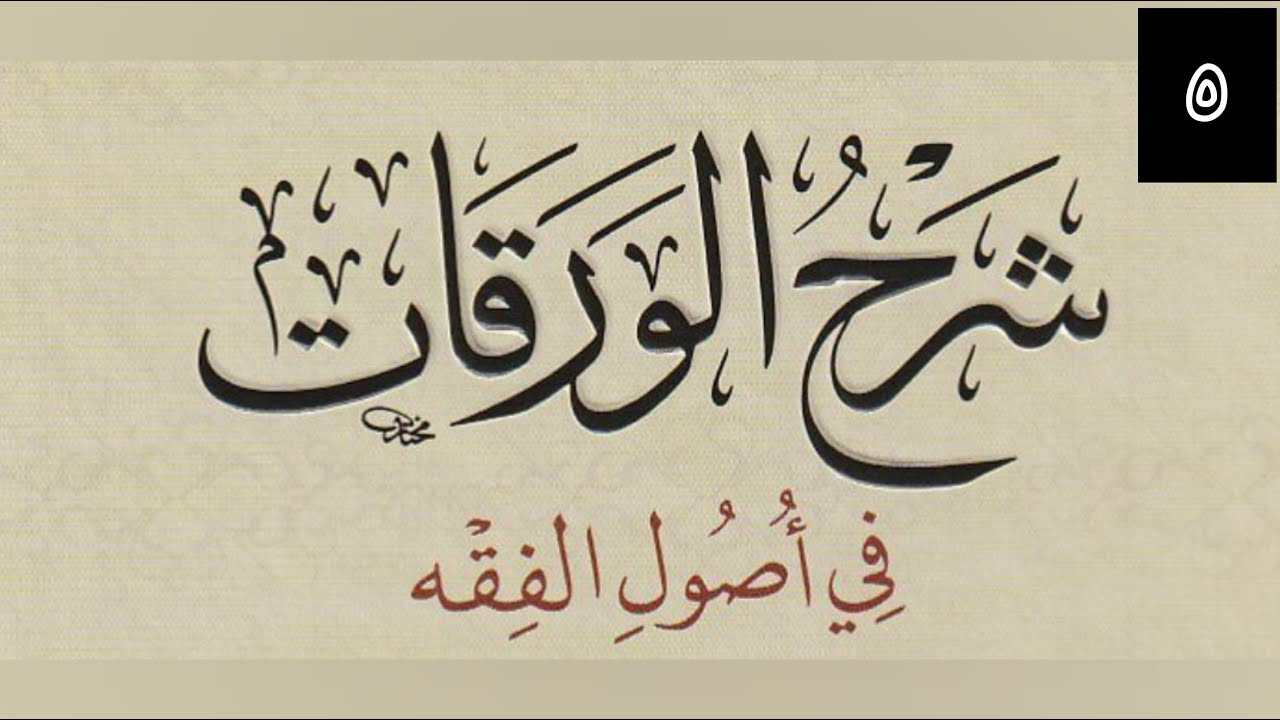 ٥
شَرْحُ الوَرَقَات
فِي أُصُولِ الفِقْه